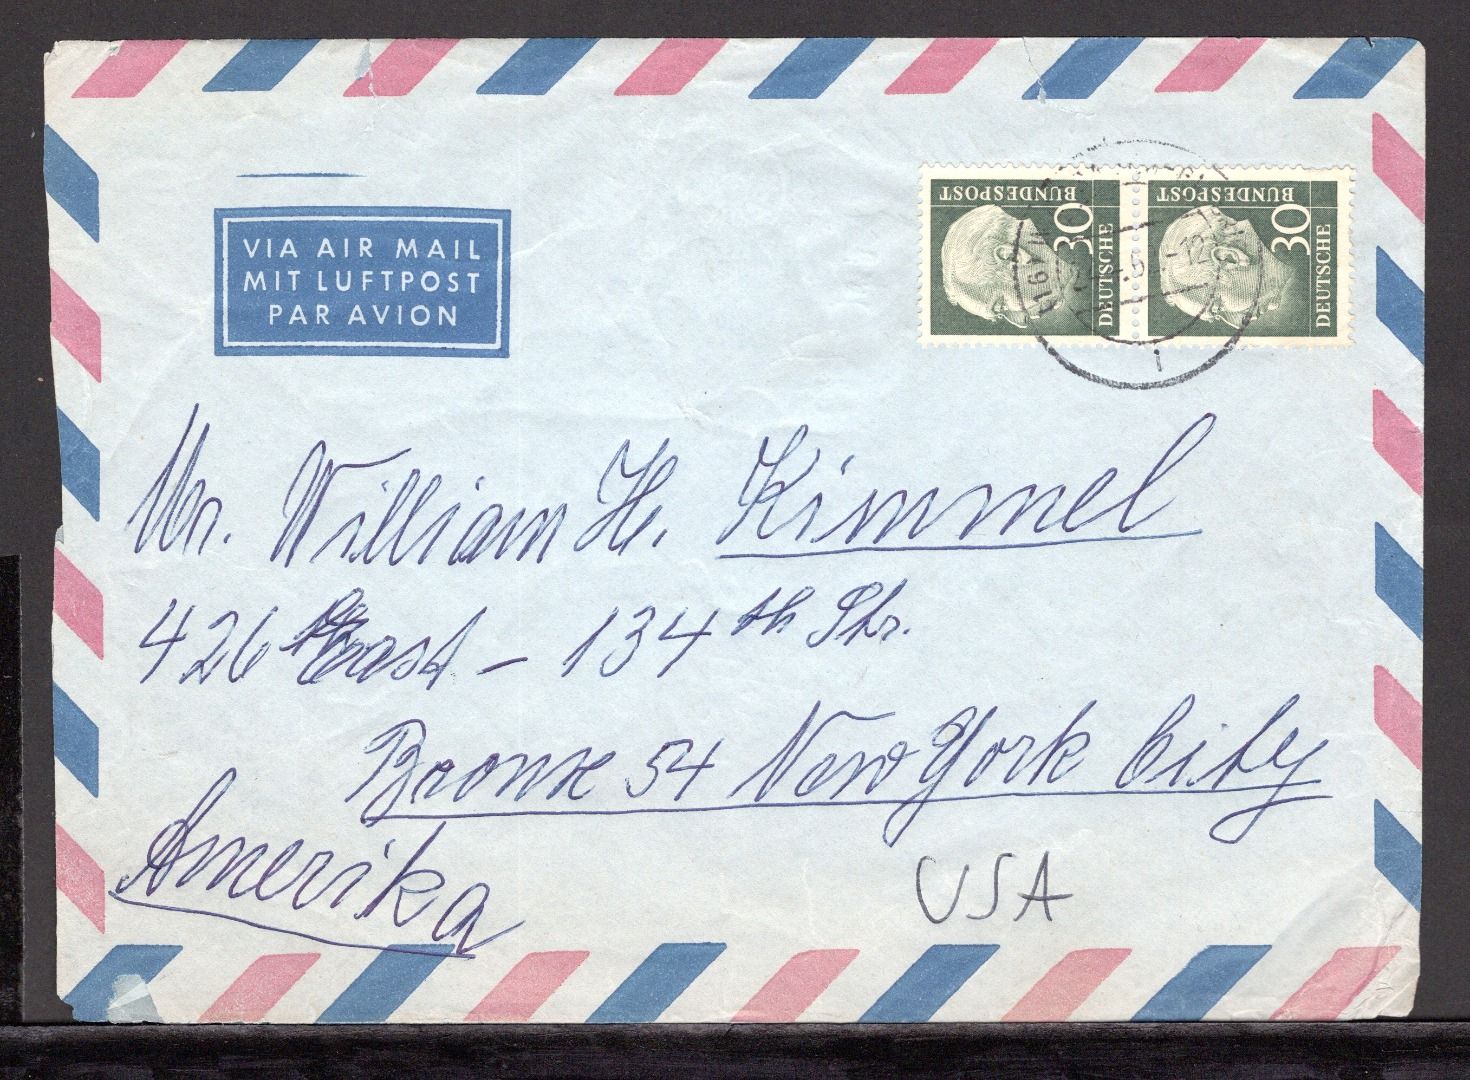 VIA AIR MAIL
MIT LUFTPOST
PAR AVION
DEUTSCHE
BUNDESPOST
30
DEUTSCHE
BUNDESPOST
30
Mr. William H. Kimmel
426 East – 134th Str.
Bronx 54 New York City
Amerika
USA